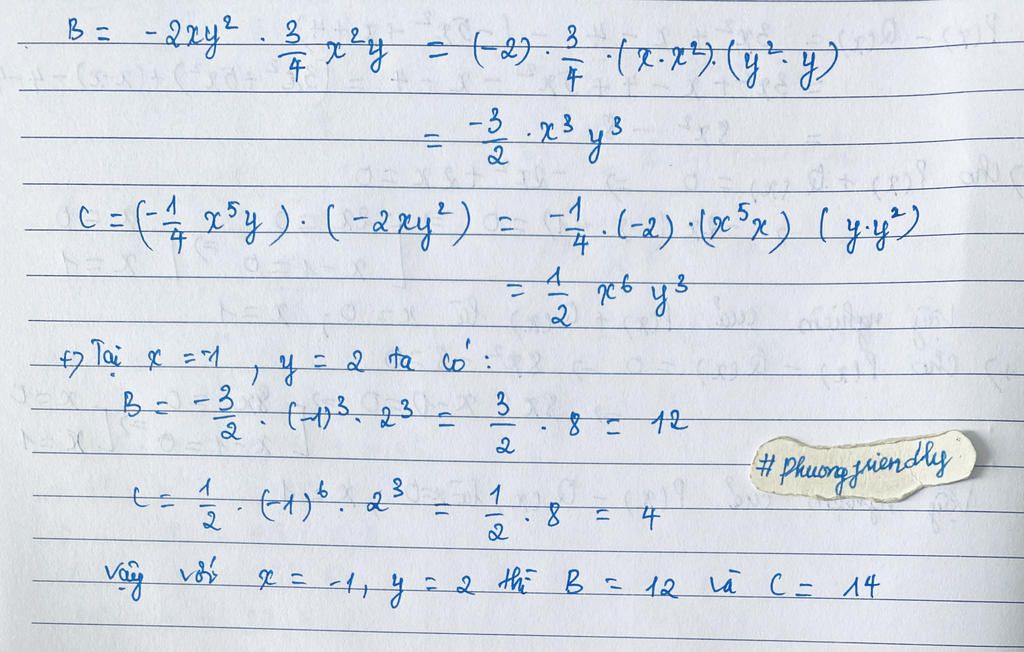 B = -2xy² · 3/4 x²y = (-2) · 3/4 · (x · x²) · (y² · y)
= -3/2 · x³ y³
C = (-1/4 x⁵y) · (-2xy²) = -1/4 · (-2) · (x⁵x) (y·y²)
= 1/2 x⁶ y³
+) Tại x = -1, y = 2 ta có:
B = -3/2 · (-1)³ · 2³ = 3/2 · 8 = 12
C = 1/2 · (-1)⁶ · 2³ = 1/2 · 8 = 4
# phuongfriendly
Vậy với x = -1, y = 2 thì B = 12 và C = 14